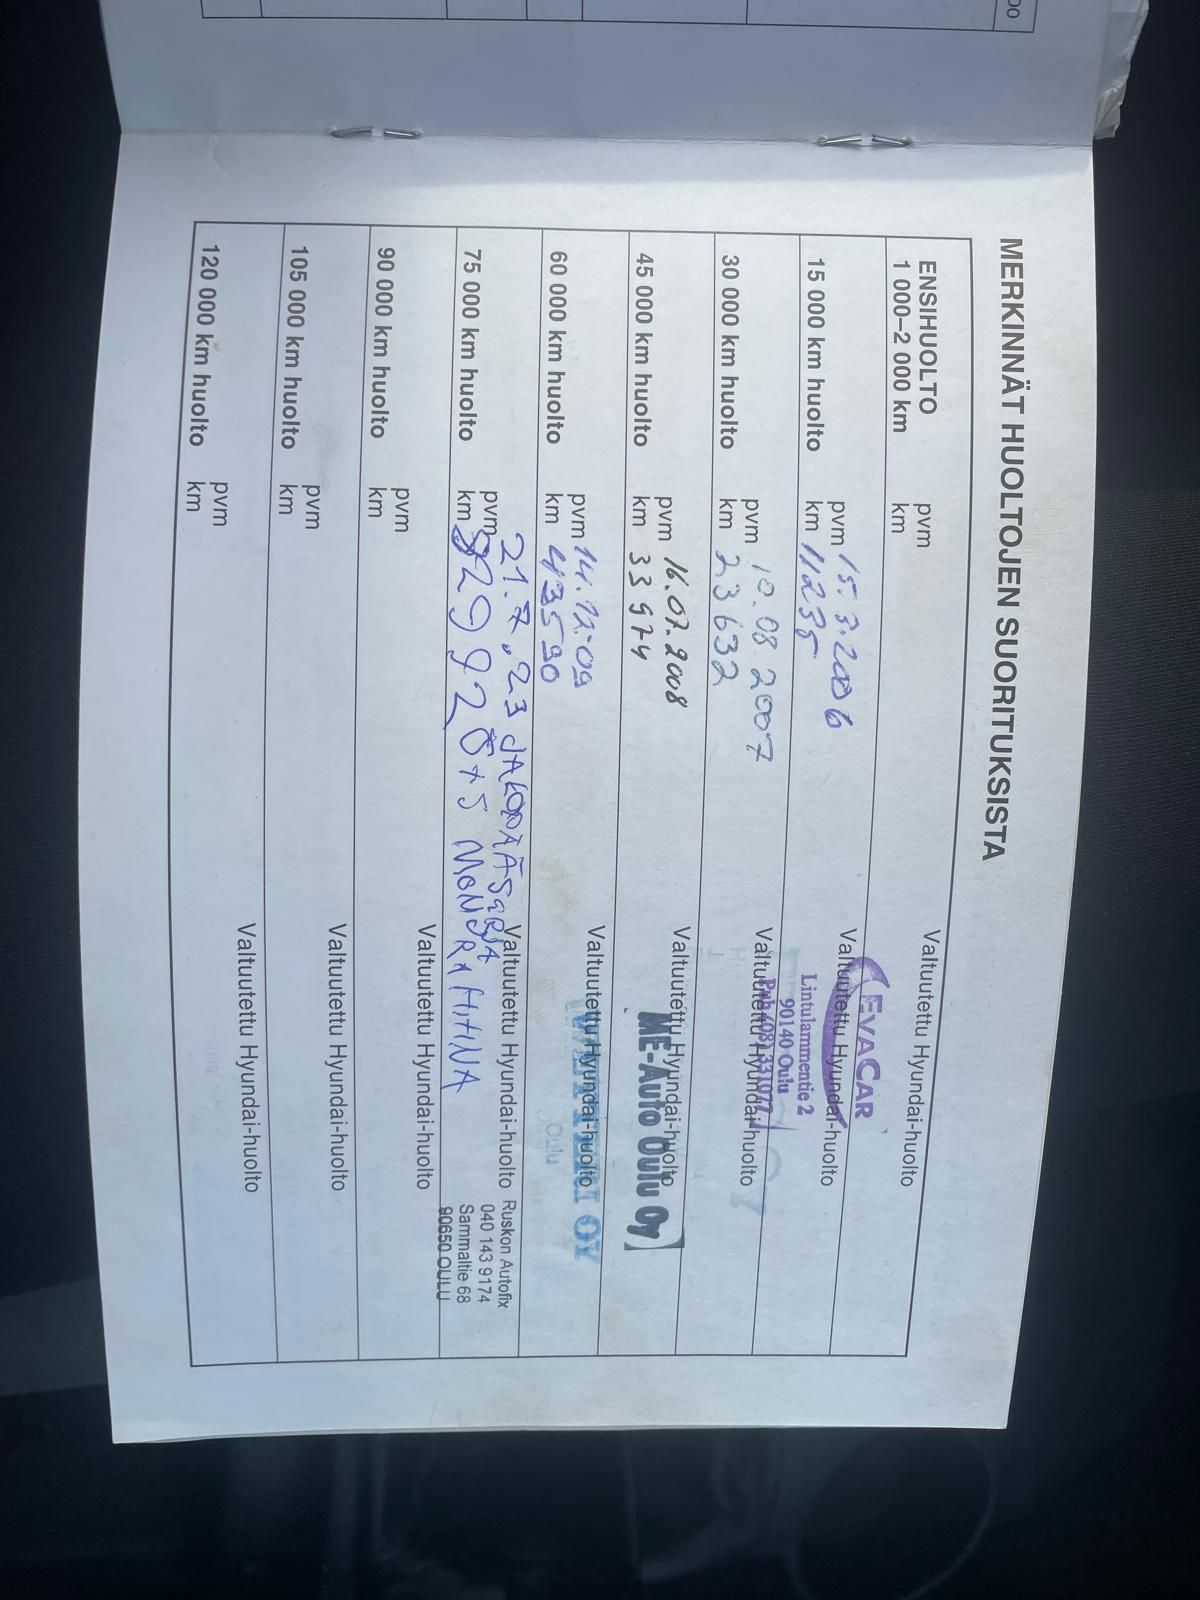 MERKINNÄT HUOLTOJEN SUORITUKSISTA
ENSIHUOLTO pvm Valtuutettu Hyundai-huolto
1 000–2 000 km km
15 000 km huolto pvm 15.3.2006 Valtuutettu Hyundai-huolto
km 11235
EVACAR
Lintulammentie 2
90140 Oulu
30 000 km huolto pvm 10.08.2007 Valtuutettu Hyundai-huolto
km 23632
45 000 km huolto pvm 16.07.2008 Valtuutettu Hyundai-huolto
km 33974
ME-Auto Oulu Oy
60 000 km huolto pvm 14.12.09 Valtuutettu Hyundai-huolto
km 43590
OY
Oulu
75 000 km huolto pvm 21.7.23 JAKOPÄÄSARJA Valtuutettu Hyundai-huolto
km
Ruskon Autofix
040 143 9174
Sammaltie 68
90650 OULU
90 000 km huolto pvm Valtuutettu Hyundai-huolto
km
105 000 km huolto pvm Valtuutettu Hyundai-huolto
km
120 000 km huolto pvm Valtuutettu Hyundai-huolto
km